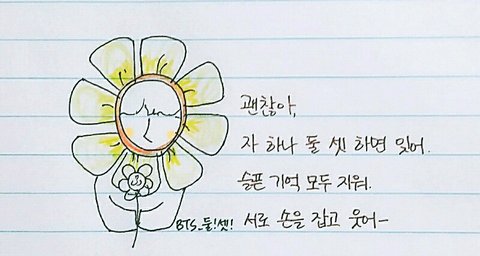 괜찮아,
자 하나 둘 셋 하면 잊어.
슬픈 기억 모두 지워.
BTS_둘!셋! 서로 손을 잡고 웃어~